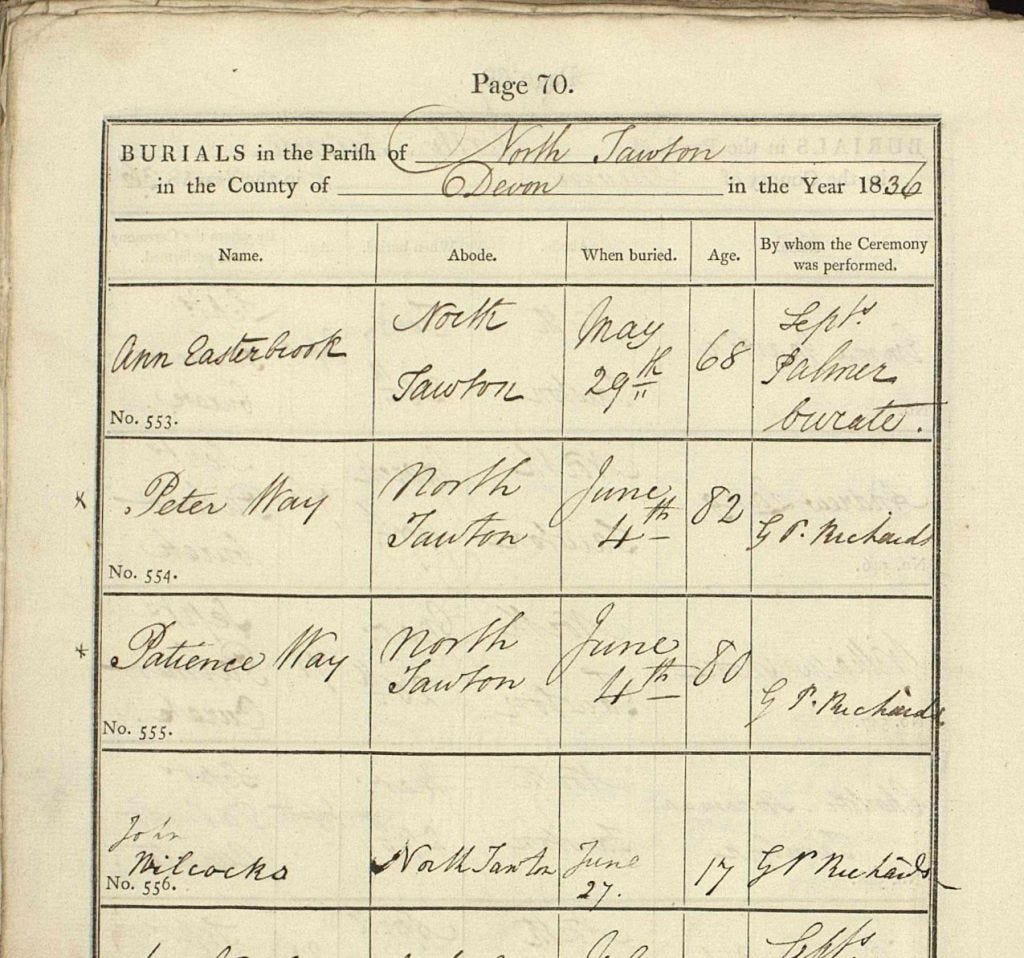 Page 70.
BURIALS in the Pariſh of North Tawton
in the County of Devon in the Year 1836
Name. Abode. When buried. Age. By whom the Ceremony was performed.
North May Septs.
Ann Easterbrook Tawton 29th 68 Palmer
No. 553. Curate.
Peter Way North June 82
Tawton 4th G P. Richards
No. 554.
Patience Way North June 80
Tawton 4th G P. Richards
No. 555.
John
Wilcocks North Tawton June 17 G P Richards
No. 556. 27.
Septs